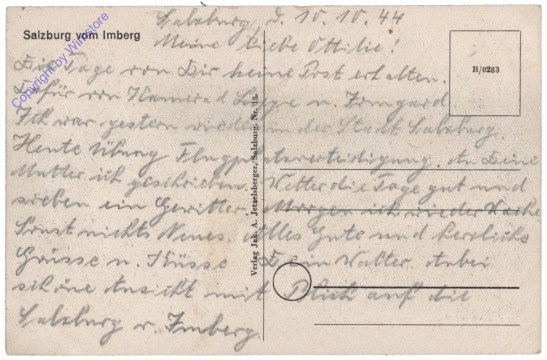 Salzburg, d. 10.10.44
Salzburg vom Imberg
Meine liebe Ottilie!
Tage von Dir keine Post erhalten.
Dafür von Kamerad u. Irmgard.
Ich war gestern wieder in der Stadt Salzburg.
Heute Übung Flugplatzverteidigung. An Deine
Mutter ich geschrieben. Wetter die Tage gut und
soeben ein Gewitter. Morgen ich wieder Wache
Sonst nichts Neues. Alles Gute und herzliche
Grüsse u. Küsse Dein Walter. Anbei
schöne Ansicht mit Blick auf die
Salzburg v. Imberg.
R/0283
Verlag Jak. A. Jetzelsberger, Salzburg. Nr.
Copyright by Winstore